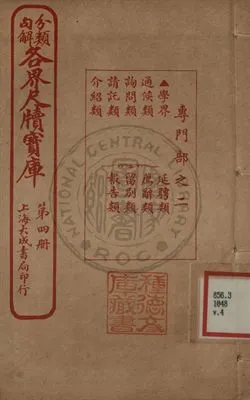 專門部之二
▲學界 延聘類
通候類 辭類
詢問類 留別類
請託類 報告類
介紹類
分類
句解
各界尺牘寶庫
第四冊
上海大成書局印行
856.3
1048
v.4
NATIONAL CENTRAL LIBRARY
R.O.C
藏書